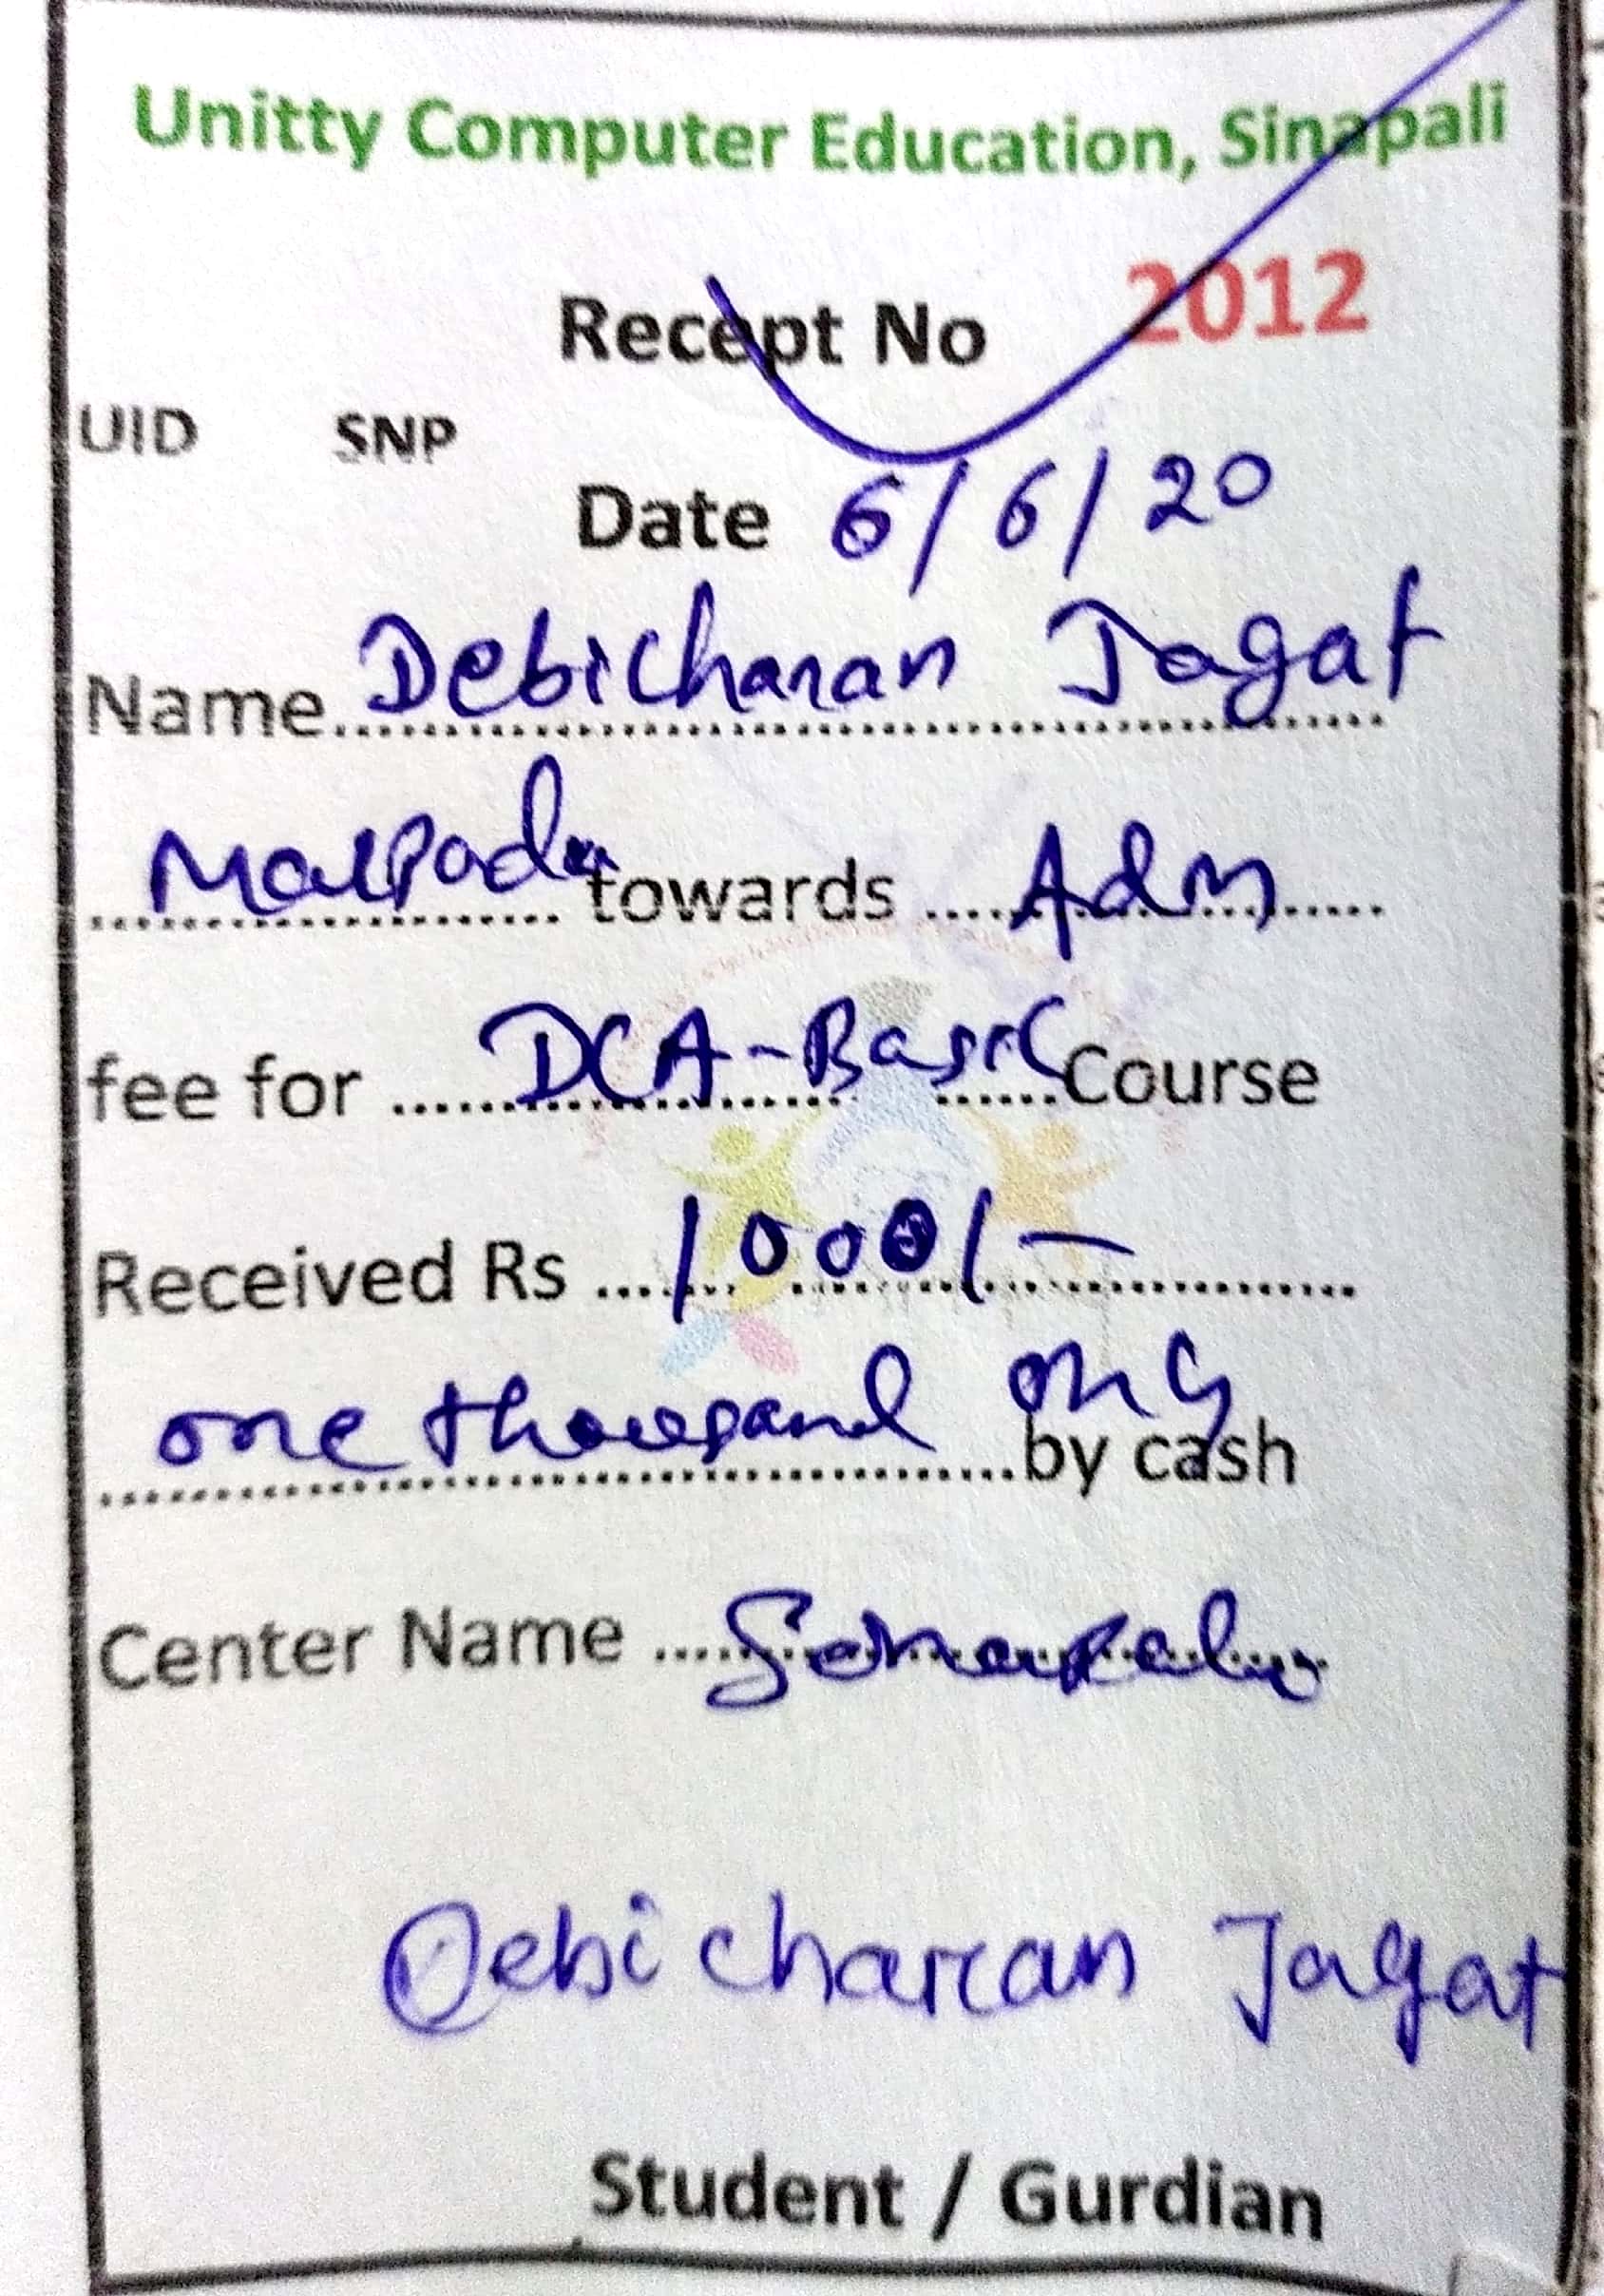 Unitty Computer Education, Sinapali
Recept No 2012
UID SNP
Date 6/6/20
Name Debicharan Jagat
Malpada towards .... Adm
fee for ...... DCA-Basic Course
Received Rs .... 1000/-
one thousand only by cash
Center Name .... Sinapali
Debi charan Jagat
Student / Gurdian